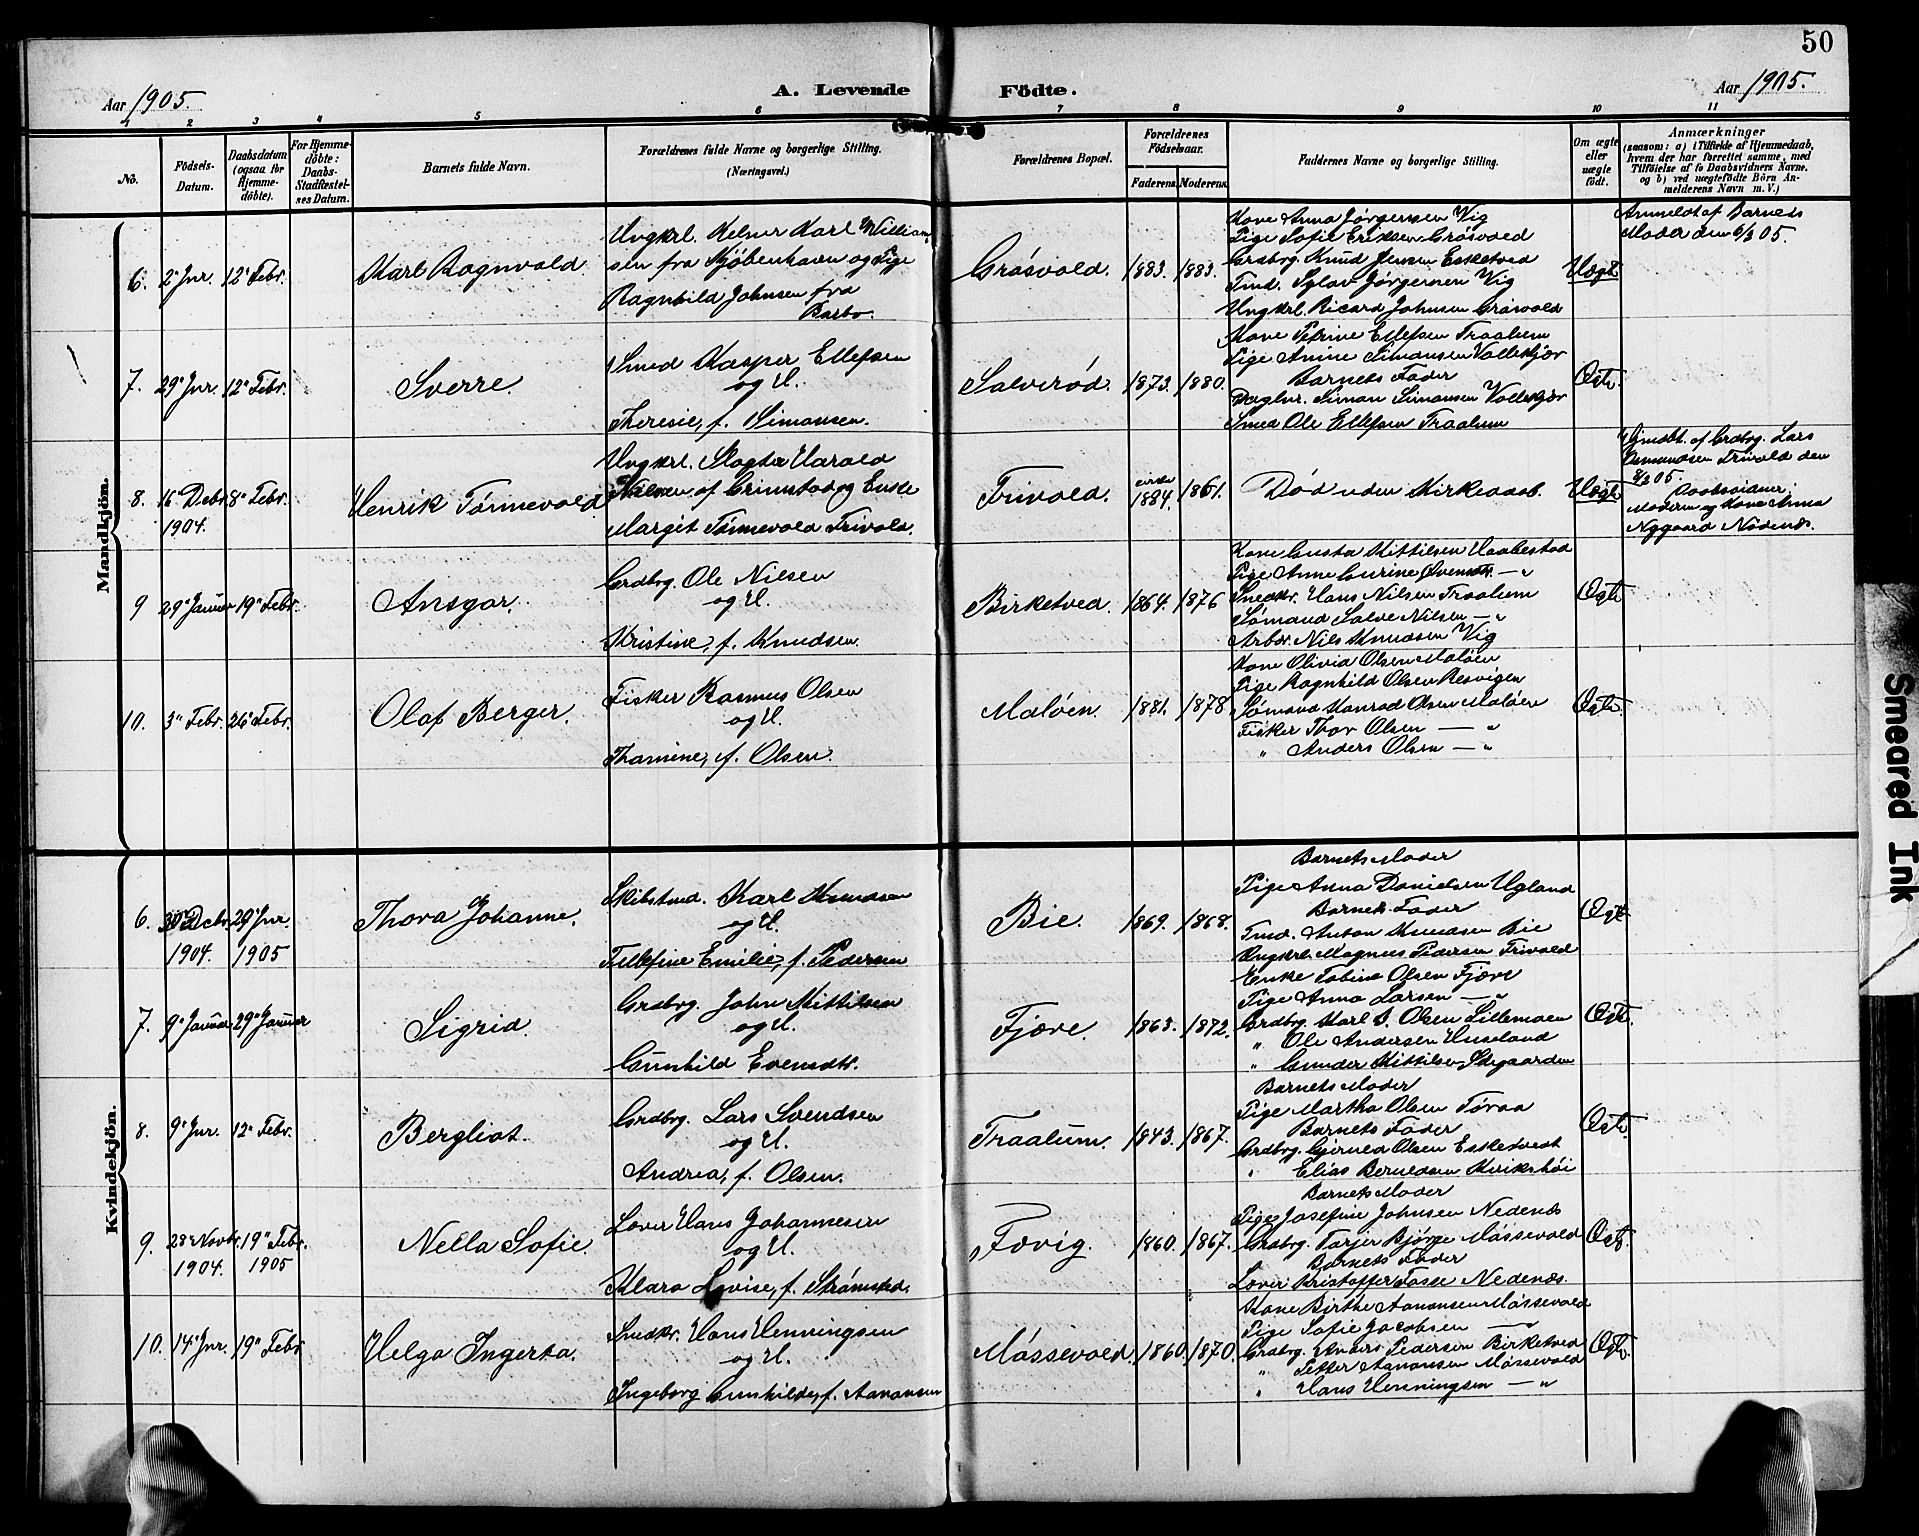 50
Aar 1905.
A. Levende Födte.
Aar 1905.
1 2 3 4 5 6 7 8 9 10 11
No.
Födsels-Datum.
Daabsdatum (ogsaa for Hjemmedöbte).
For Hjemmedöbte: Daabs-Stadfæstelses Datum.
Barnets fulde Navn.
Forældrenes fulde Navne og borgerlige Stilling. (Næringsvei.)
Forældrenes Bopæl.
Forældrenes Födselsaar.
Faderens. Moderens.
Faddernes Navne og borgerlige Stilling.
Om ægte eller uægte födt.
Anmærkninger
(saasom: a) i Tilfælde af Hjemmedaab, hvem der har forrettet samme, med Tilföielse af to Daabsvidners Navne, og b) ved uægtefödte Börn Anmelderens Navn m. V.)
Mandkjön.
6. 2' Jnr. 12' Febr. Karl Ragnvald
Ungkrl. Kelner Karl William-
sen fra Kjøbenhavn og Pige
Ragnhild Johnsen fra
Barbo.
Grøsvold. 1883. 1883.
Kone Anna Jørgensen Vig
Pige Sofie Eriksen Grøsvold
Grdbrg. Knud Jensen Esketved
Tmd. Sylov Jørgensen Vig
Ungkrl. Ricard Johnsen Grøsvold
Uægt.
Anmeldt af Barnets
Moder den 6/2 05.
7. 29' Jnr. 12' Febr. Sverre.
Smed Kasper Ellefsen
og H.
Theresie, f. Simonsen.
Salverød. 1873. 1880.
Kone Petrine Ellefsen Traalum
Pige Amine Simonsen Vollekjær
Barnets Fader
Daglnr. Simon Simonsen Vollekjær
Smed Ole Ellefsen Traalum
Ægte.
8. 16' Debr. 8' Febr. Henrik Tønnevold
1904.
Ungkrl. Slagter Harald
af Grimstad og Enke
Margit Tønnevold Frivold.
Frivold. cirka 1884. 1861.
Død uden Kirkedaab.
Uægt.
Hjmdbt. af Grdbrg. Lars
Osmundsen Frivold den
8/2 05. Daabsvidner:
Moderen og Kone Anna
Nygaard Nødenes.
9 29' Januar 19' Febr. Ansgar.
Grdbrg. Ole Nilsen
og H.
Kristine, f. Knudsen.
Birketved. 1864. 1876
Kone Gusta Kittilsen Haabestad
Pige Anne Gurine — "
Snedkr. Hans Nilsen Traalum
Sømand Salve Nilsen — "
Arbdr. Nils Knudsen Vig
Ægte.
10. 3" Febr. 26' Febr. Olaf Berger.
Fisker Rasmus Olsen
og H.
Thomine, f. Olsen.
Maløen. 1881. 1878.
Kone Olivia Olsen Maløen
Pige Ragnhild Olsen Resvigen
Sømand Konrad Olsen Maløen
Fisker Thor Olsen — "
" Anders Olsen — "
Ægte.
Kvindekjön.
6. 30' Debr. 29' Jnr. Thora Johanne.
1904. 1905
Skibstmd. Karl Knudsen
og H.
Tellefine Emilie, f. Pedersen
Bie. 1869. 1868.
Barnets Moder
Pige Anna Danielsen Ugland
Barnets Fader
Tmd. Anton Knudsen Bie
Ungkrl. Magnus Pedersen Frivold
Ægte
7. 9' Januar 29' Januar Sigrid.
Grdbrg. John Kittilsen
og H.
Gunhild Evensdtr.
Fjære. 1863. 1872.
Enke Tobine Olsen Fjære
Pige Anna Larsen — "
Grdbrg. Karl J. Olsen Lillemoen
" Ole Andersen Huseland
" Gunder Kittilsen Skgaarden
Ægte.
8. 9' Jnr. 12' Febr. Bergliot.
Grdbrg. Lars Svendsen
og H.
Andrea, f. Olsen.
Traalum. 1843. 1867.
Barnets Moder
Pige Martha Olsen Tøraa
Barnets Fader
Grdbrg. Gjerued Olsen Esketvedt
" Elias Berneldsen Kvikshøi
Ægte.
9. 28' Novbr. 19" Febr. Nella Sofie.
1904. 1905
Laver Hans Johannesen
og H.
Klara Lovise, f. Strømsted.
Fævig. 1860. 1867.
Barnets Moder
Pige Josefine Johnsen Nedenæs
Grdbrg. Tarjer Bjørge Møssevold
Barnets Fader
Laver Kristoffer Fosse Nedenæs.
Ægte.
10. 14' Jnr. 19" Febr. Helga Ingerta.
Snedkr. Hans Henningsen
og H.
Ingeborg Gunhilde, f. Aanonsen
Møssevold. 1860. 1870.
Kone Birthe Aanonsen Møssevold
Pige Sofie Jacobsen — "
Grdbrg. Anders Pedersen Birketved
" Petter Aanonsen Møssevold
" Hans Henningsen — "
Ægte.
Smeared Ink